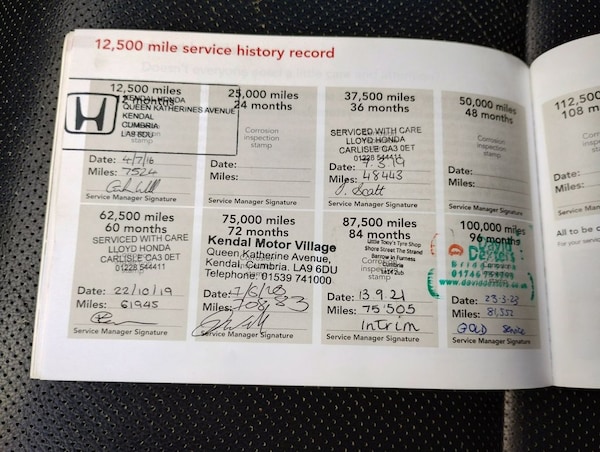 12,500 mile service history record
12,500 miles
12 months
KENDAL HONDA
QUEEN KATHERINES AVENUE
KENDAL
CUMBRIA
LA9 6DU
stamp
Date: 4/7/16
Miles: 7524
Service Manager Signature
25,000 miles
24 months
Corrosion
inspection
stamp
Date:
Miles:
Service Manager Signature
37,500 miles
36 months
SERVICED WITH CARE
LLOYD HONDA
CARLISLE CA3 0ET
01228 544411
Date: 7.3.19
Miles: 48443
J. Scott
Service Manager Signature
50,000 miles
48 months
Corrosion
inspection
stamp
Date:
Miles:
Service Manager Signature
112,500
108 m
Date:
Miles:
Service Man
62,500 miles
60 months
SERVICED WITH CARE
LLOYD HONDA
CARLISLE CA3 0ET
01228 544411
Date: 22/10/19
Miles: 61945
Service Manager Signature
75,000 miles
72 months
Kendal Motor Village
Queen Katherine Avenue,
Kendal, Cumbria. LA9 6DU
Telephone: 01539 741000
Date:
Miles:
Service Manager Signature
87,500 miles
84 months
Little Tony's Tyre Shop
Shore Street The Strand
Barrow in Furness
Cumbria
Date: 13.9.21
Miles: 75505
Intrim
Service Manager Signature
100,000 miles
96 months
Date: 23-3-23
Miles: 81,552
GOLD Service
Service Manager Signature
All to be c
For your service